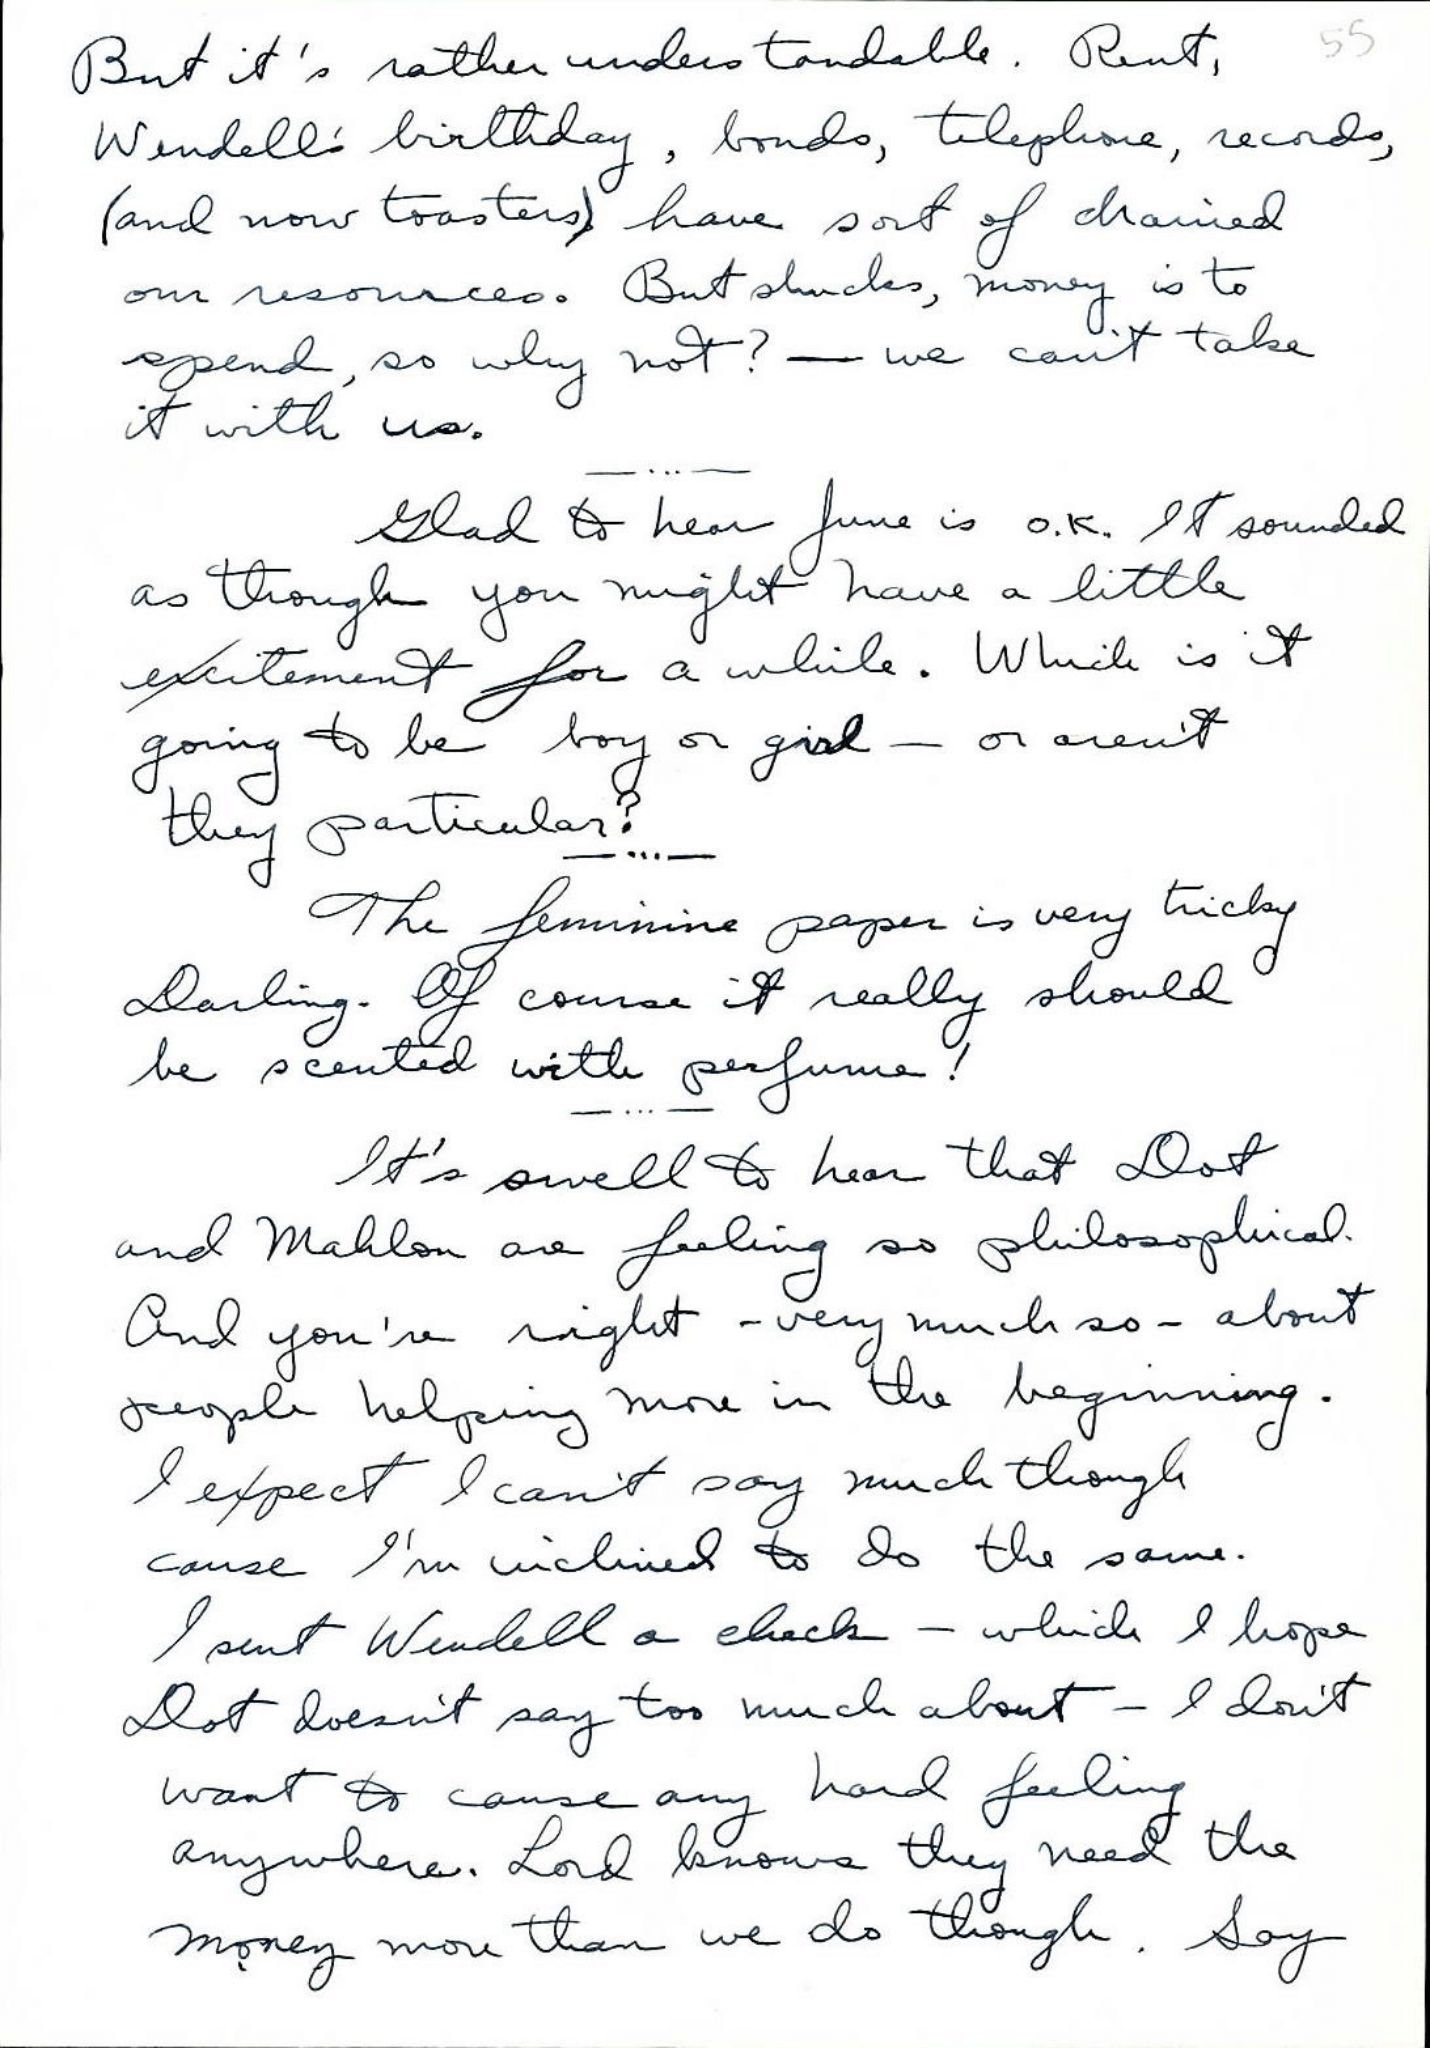 55
But it's rather understandable. Rent,
Wendell's birthday, bonds, telephone, records,
(and now toasters) have sort of drained
our resources. But shucks, money is to
spend, so why not? — we can't take
it with us.
— ... —
Glad to hear June is o.k. It sounded
as though you might have a little
excitement for a while. Which is it
going to be boy or girl — or aren't
they particular?
— ... —
The feminine paper is very tricky
Darling. Of course it really should
be scented with perfume!
— ... —
It's swell to hear that Dot
and Mahlon are feeling so philosophical.
And you're right - very much so - about
people helping more in the beginning.
I expect I can't say much though
cause I'm inclined to do the same.
I sent Wendell a check – which I hope
Dot doesn't say too much about – I don't
want to cause any hard feeling
anywhere. Lord knows they need the
money more than we do though. Say